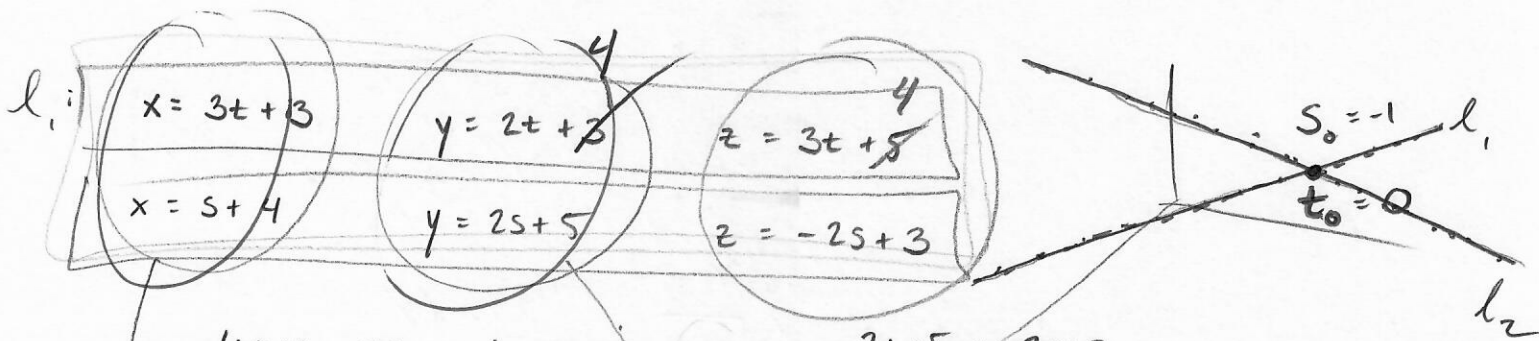 l₁: x = 3t + 3 y = 2t + 3 4 z = 3t + 5 4
x = s + 4 y = 2s + 5 z = -2s + 3
s₀ = -1 l₁
t₀ = 0
l₂